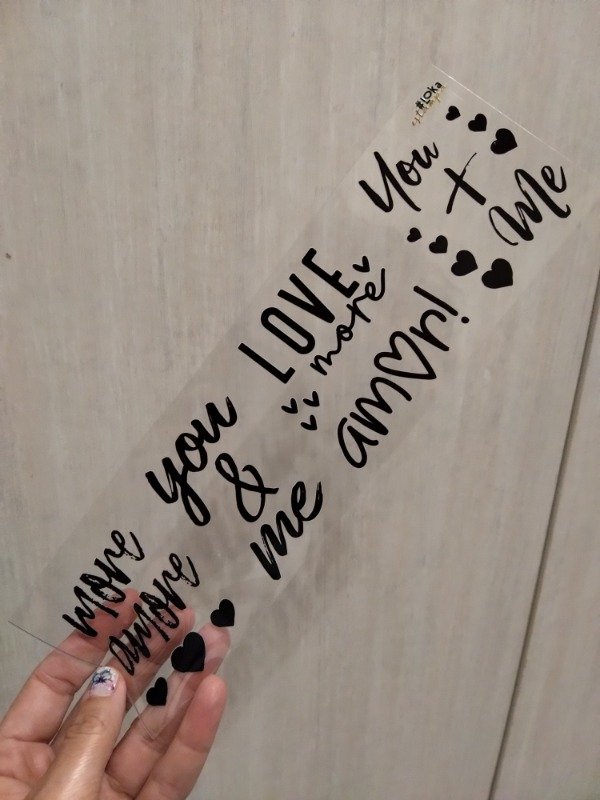 #LOKA
estampa
You
+
Me
LOVE
more
amor!
you
&
me
more
amore